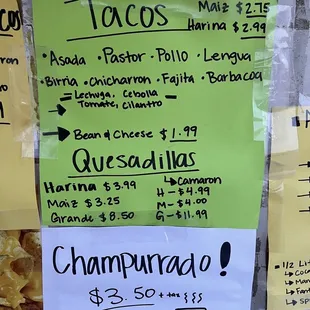 Tacos
Maiz $2.75
Harina $2.99
• Asada • Pastor • Pollo • Lengua
• Birria • Chicharron • Fajita • Barbacoa
= Lechuga, Cebolla
Tomate, Cilantro
→ Bean & Cheese $1.99
Quesadillas
Harina $3.99
Maiz $3.25
Grande $8.50
↳ Camaron
H - $4.99
M - $4.00
G - $11.99
Champurrado!
$3.50 + tax
• 1/2 Li
↳ Coc
↳ Man
↳ Fant
↳ Sp